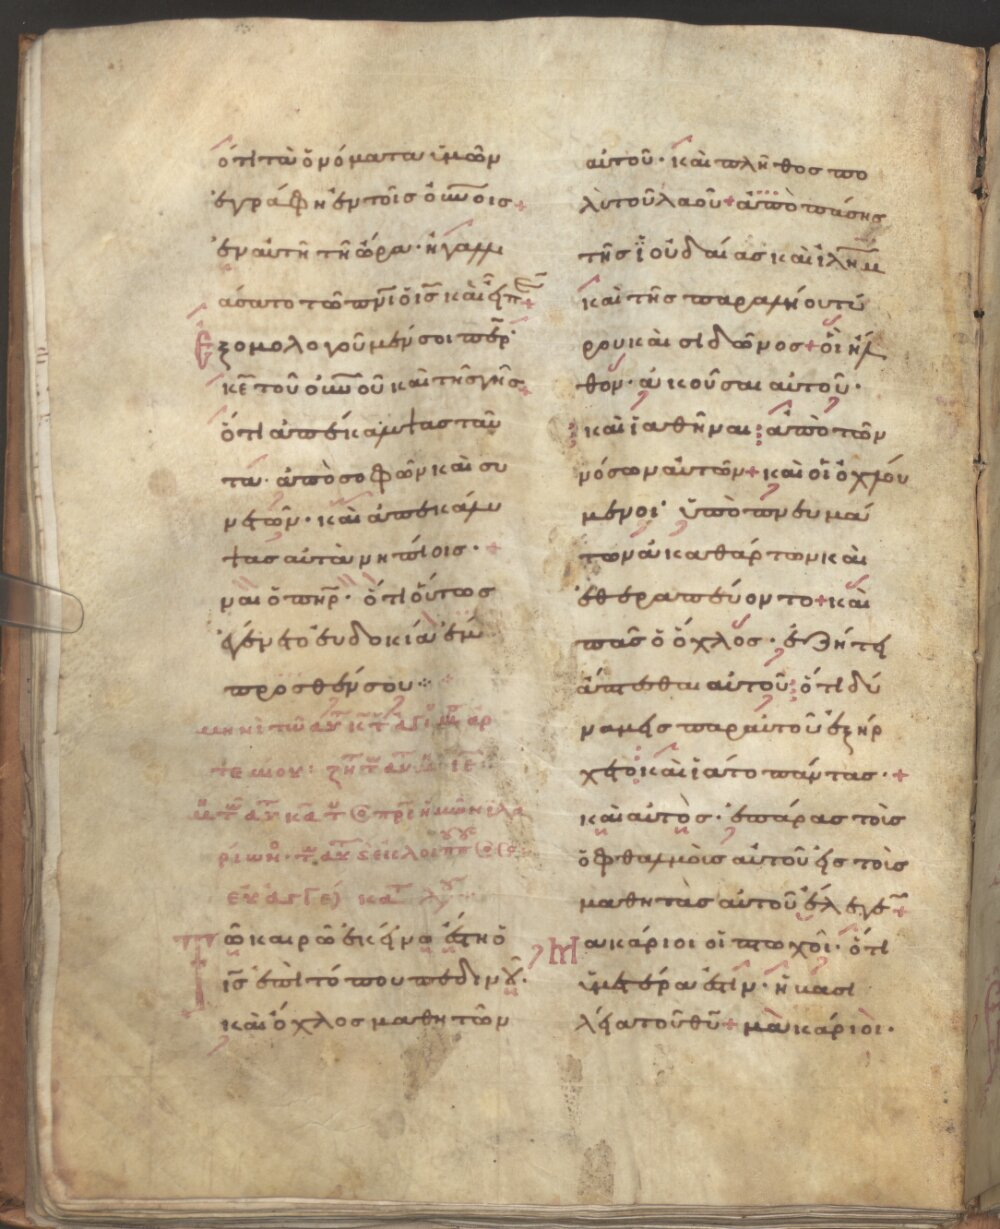 ὅτι τὰ ὀνόματα ὑμῶν
ἐγράφη ἐν τοῖς οὐνοις+
ἐν αὐτῆ τῆ ὥρα· ἠγαλλι
άσατο τῶ πνι ὁ ις καὶ εἶπ+
Ἐξομολογοῦμαί σοι περ
κε τοῦ οὐνοῦ καὶ τῆς γῆς+
ὅτι ἀπέκρυψας ταῦ
τα· ἀπὸ σοφῶν καὶ συ
νετῶν· καὶ ἀπεκάλυ
ψας αὐτὰ νηπίοις·+
ναὶ ὁ πηρ· ὅτι οὕτως
ἐγένετο εὐδοκία ἔμ
προσθέν σου·:+
μηνὶ τῶ αὐτ
τεμου·
ρίων·
εὐαγγε κατ λου
Τῶ καιρῶ ἐκείνω ἔστη ὁ
ις ἐπὶ τόπου πεδινου·
καὶ ὄχλος μαθητῶν
αὐτοῦ· καὶ πλῆθος πο
λὺ τοῦ λαοῦ+ἀπὸ πάσης
τῆς ἰουδαίας καὶ ιλημ
καὶ τῆς παραλίου τύ
ρου καὶ σιδῶνος+οἳ ἦλ
θον· ἀκοῦσαι αὐτοῦ·
καὶ ἰαθῆναι ἀπὸ τῶν
νόσων αὐτῶν+καὶ οἱ ὀχλού
μενοι· ὑπὸ πνευμά
των ἀκαθάρτων καὶ
ἐθεραπεύοντο+καὶ
πᾶς ὁ ὄχλος· ἐζήτει
ἅπτεσθαι αὐτοῦ ὅτι δύ
ναμις παρ αὐτοῦ ἐξήρ
χετο καὶ ἰᾶτο πάντας·+
καὶ αὐτὸς· ἐπάρας τοὺς
ὀφθαλμοὺς αὐτοῦ εἰς τοὺς
μαθητὰς αὐτοῦ ἔλεγε+
Μακάριοι οἱ πτωχοὶ· ὅτι
ὑμετέρα ἐστὶν· ἡ βασι
λεία τοῦ θυ+μακάριοι·